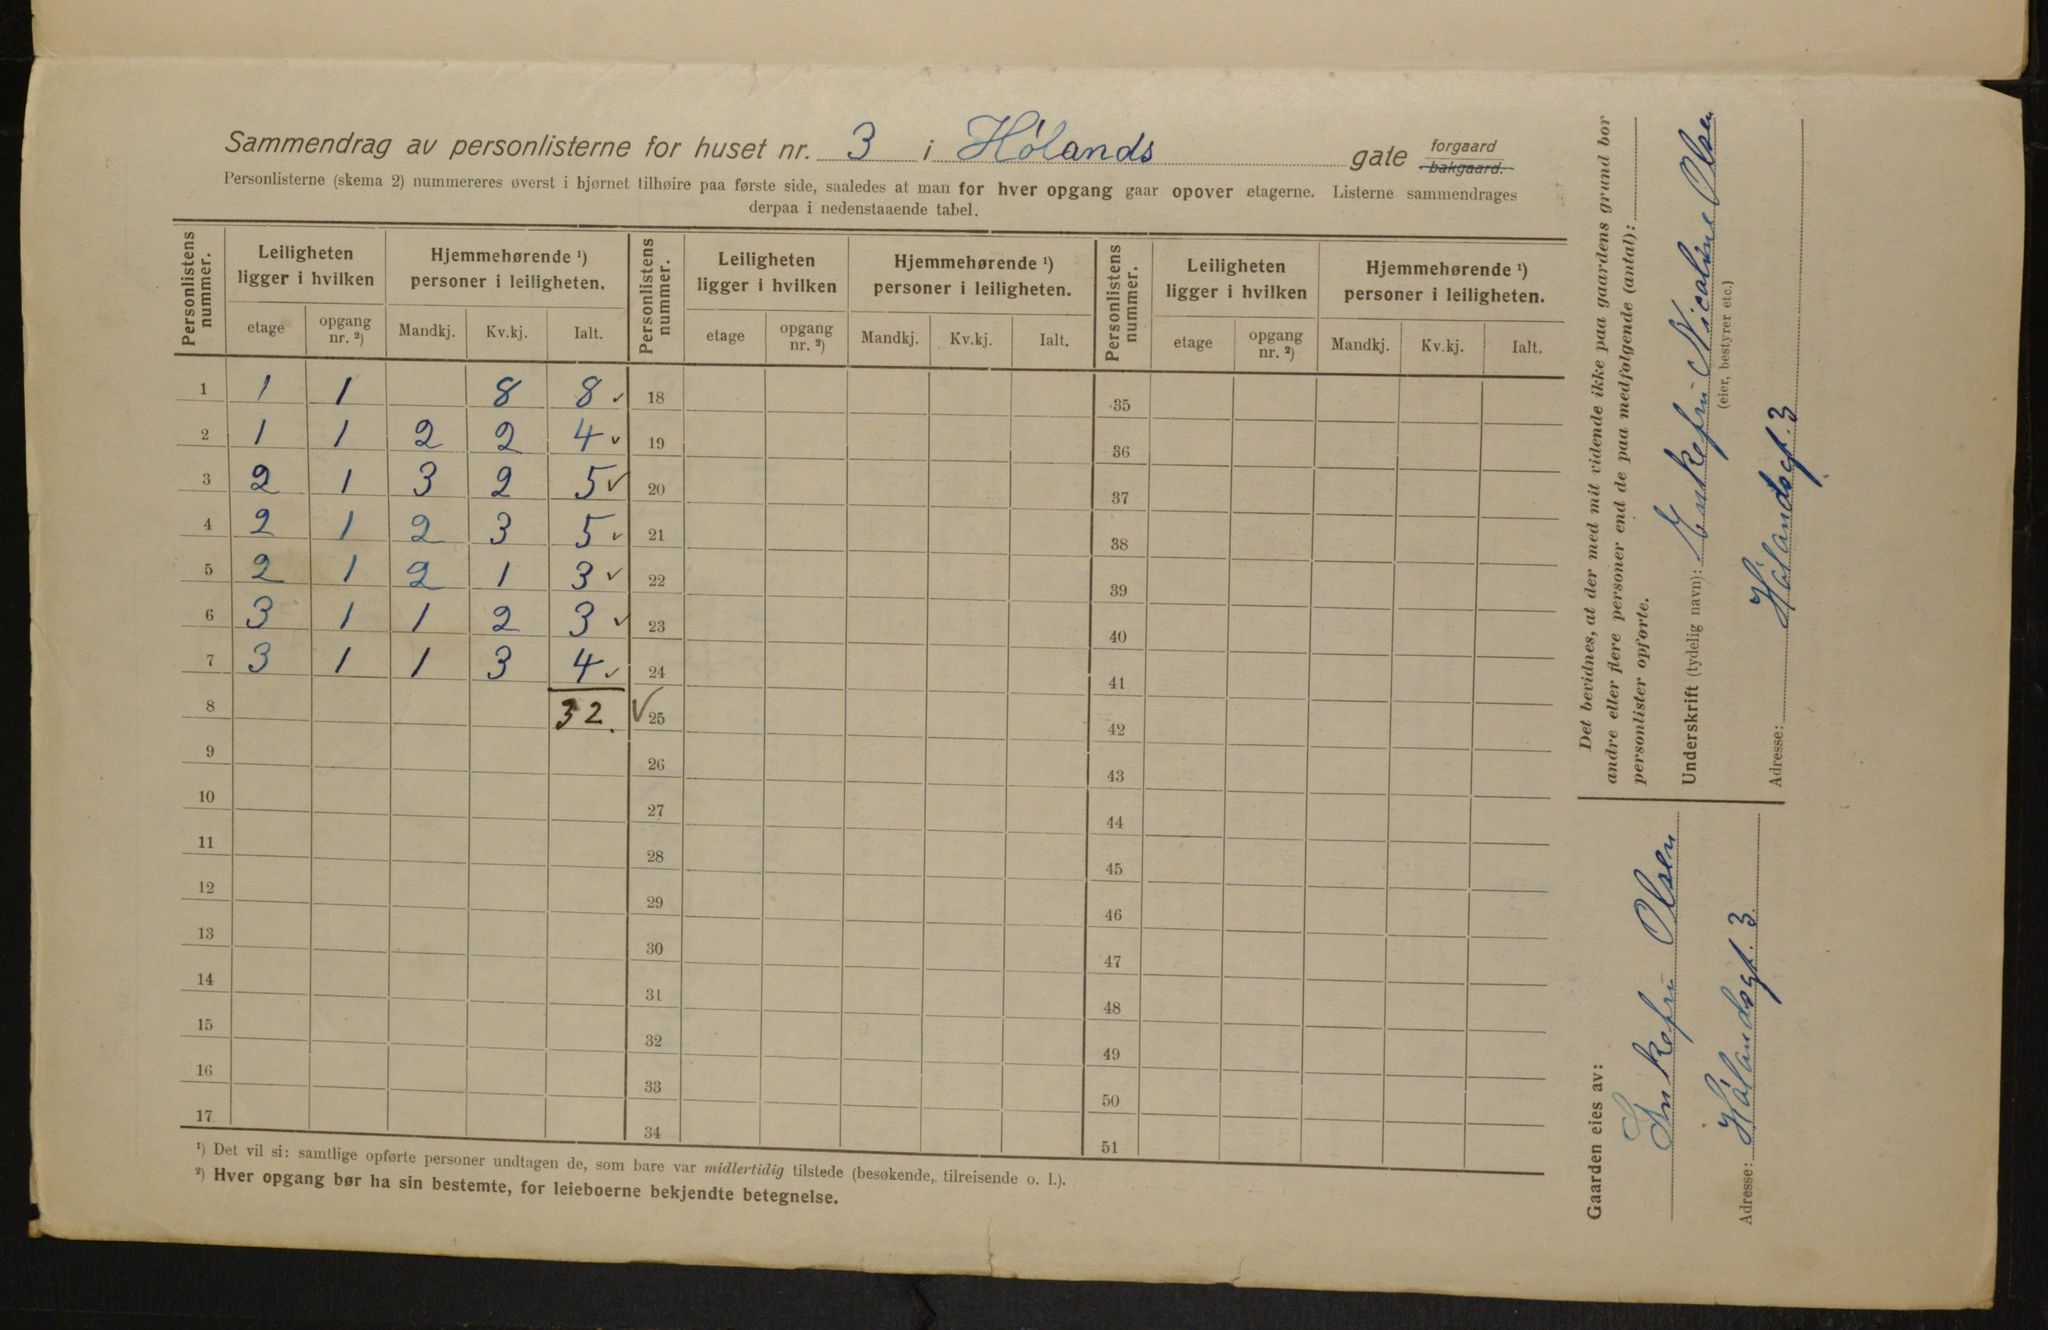 Sammendrag av personlisterne for huset nr. 3 i Hölands gate forgaard bakgaard.
Personlisterne (skema 2) nummereres øverst i bjørnet tilhøire paa første side, saaledes at man for hver opgang gaar opover etagerne. Listerne sammendrages
derpaa i nedenstaaende tabel.
Personlistens nummer. Leiligheten ligger i hvilken Hjemmehørende ¹) personer i leiligheten. Personlistens nummer. Leiligheten ligger i hvilken Hjemmehørende ¹) personer i leiligheten. Personlistens nummer. Leiligheten ligger i hvilken Hjemmehørende ¹) personer i leiligheten.
etage opgang nr. ²) Mandkj. Kv.kj. Ialt. etage opgang nr. ²) Mandkj. Kv.kj. Ialt. etage opgang nr. ²) Mandkj. Kv.kj. Ialt.
1 1 1 8 8 ✓ 18 35
2 1 1 2 2 4 ✓ 19 36
3 2 1 3 2 5 ✓ 20 37
4 2 1 2 3 5 ✓ 21 38
5 2 1 2 1 3 ✓ 22 39
6 3 1 1 2 3 ✓ 23 40
7 3 1 1 3 4 ✓ 24 41
8 32. ✓ 25 42
9 26 43
10 27 44
11 28 45
12 29 46
13 30 47
14 31 48
15 32 49
16 33 50
17 34 51
¹) Det vil si: samtlige opførte personer undtagen de, som bare var midlertidig tilstede (besøkende, tilreisende o. l.).
²) Hver opgang bør ha sin bestemte, for leieboerne bekjendte betegnelse.
Det bevidnes, at der med mit vidende ikke paa gaardens grund bor
andre eller flere personer end de paa medfølgende (antal):
personlister opførte.
Underskrift (tydelig navn): Enkefru Nicaline Olsen
(eier, bestyrer etc.)
Adresse: Hölandsgt. 3
Gaarden eies av:
Enkefru Olsen
Adresse: Hölandsgt. 3.